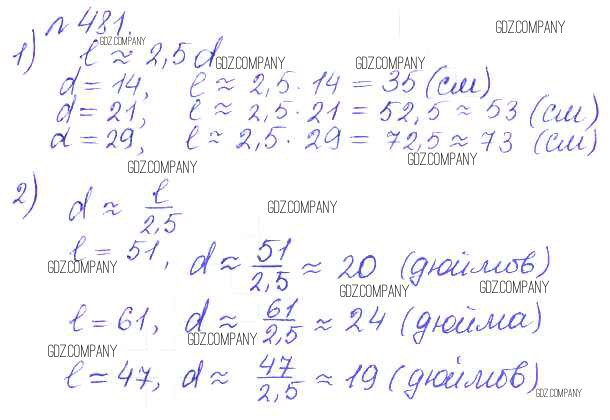 № 481.
GDZ.COMPANY
GDZ.COMPANY
1) l ≈ 2,5 d
GDZ.COMPANY GDZ.COMPANY
d = 14, l ≈ 2,5 · 14 = 35 (см)
d = 21, l ≈ 2,5 · 21 = 52,5 ≈ 53 (см)
d = 29, l ≈ 2,5 · 29 = 72,5 ≈ 73 (см)
GDZ.COMPANY GDZ.COMPANY
2) d ≈ l/2,5
GDZ.COMPANY
l = 51, d ≈ 51/2,5 ≈ 20 (дюймов)
GDZ.COMPANY GDZ.COMPANY GDZ.COMPANY
l = 61, d ≈ 61/2,5 ≈ 24 (дюйма)
GDZ.COMPANY GDZ.COMPANY
l = 47, d ≈ 47/2,5 ≈ 19 (дюймов)
GDZ.COMPANY